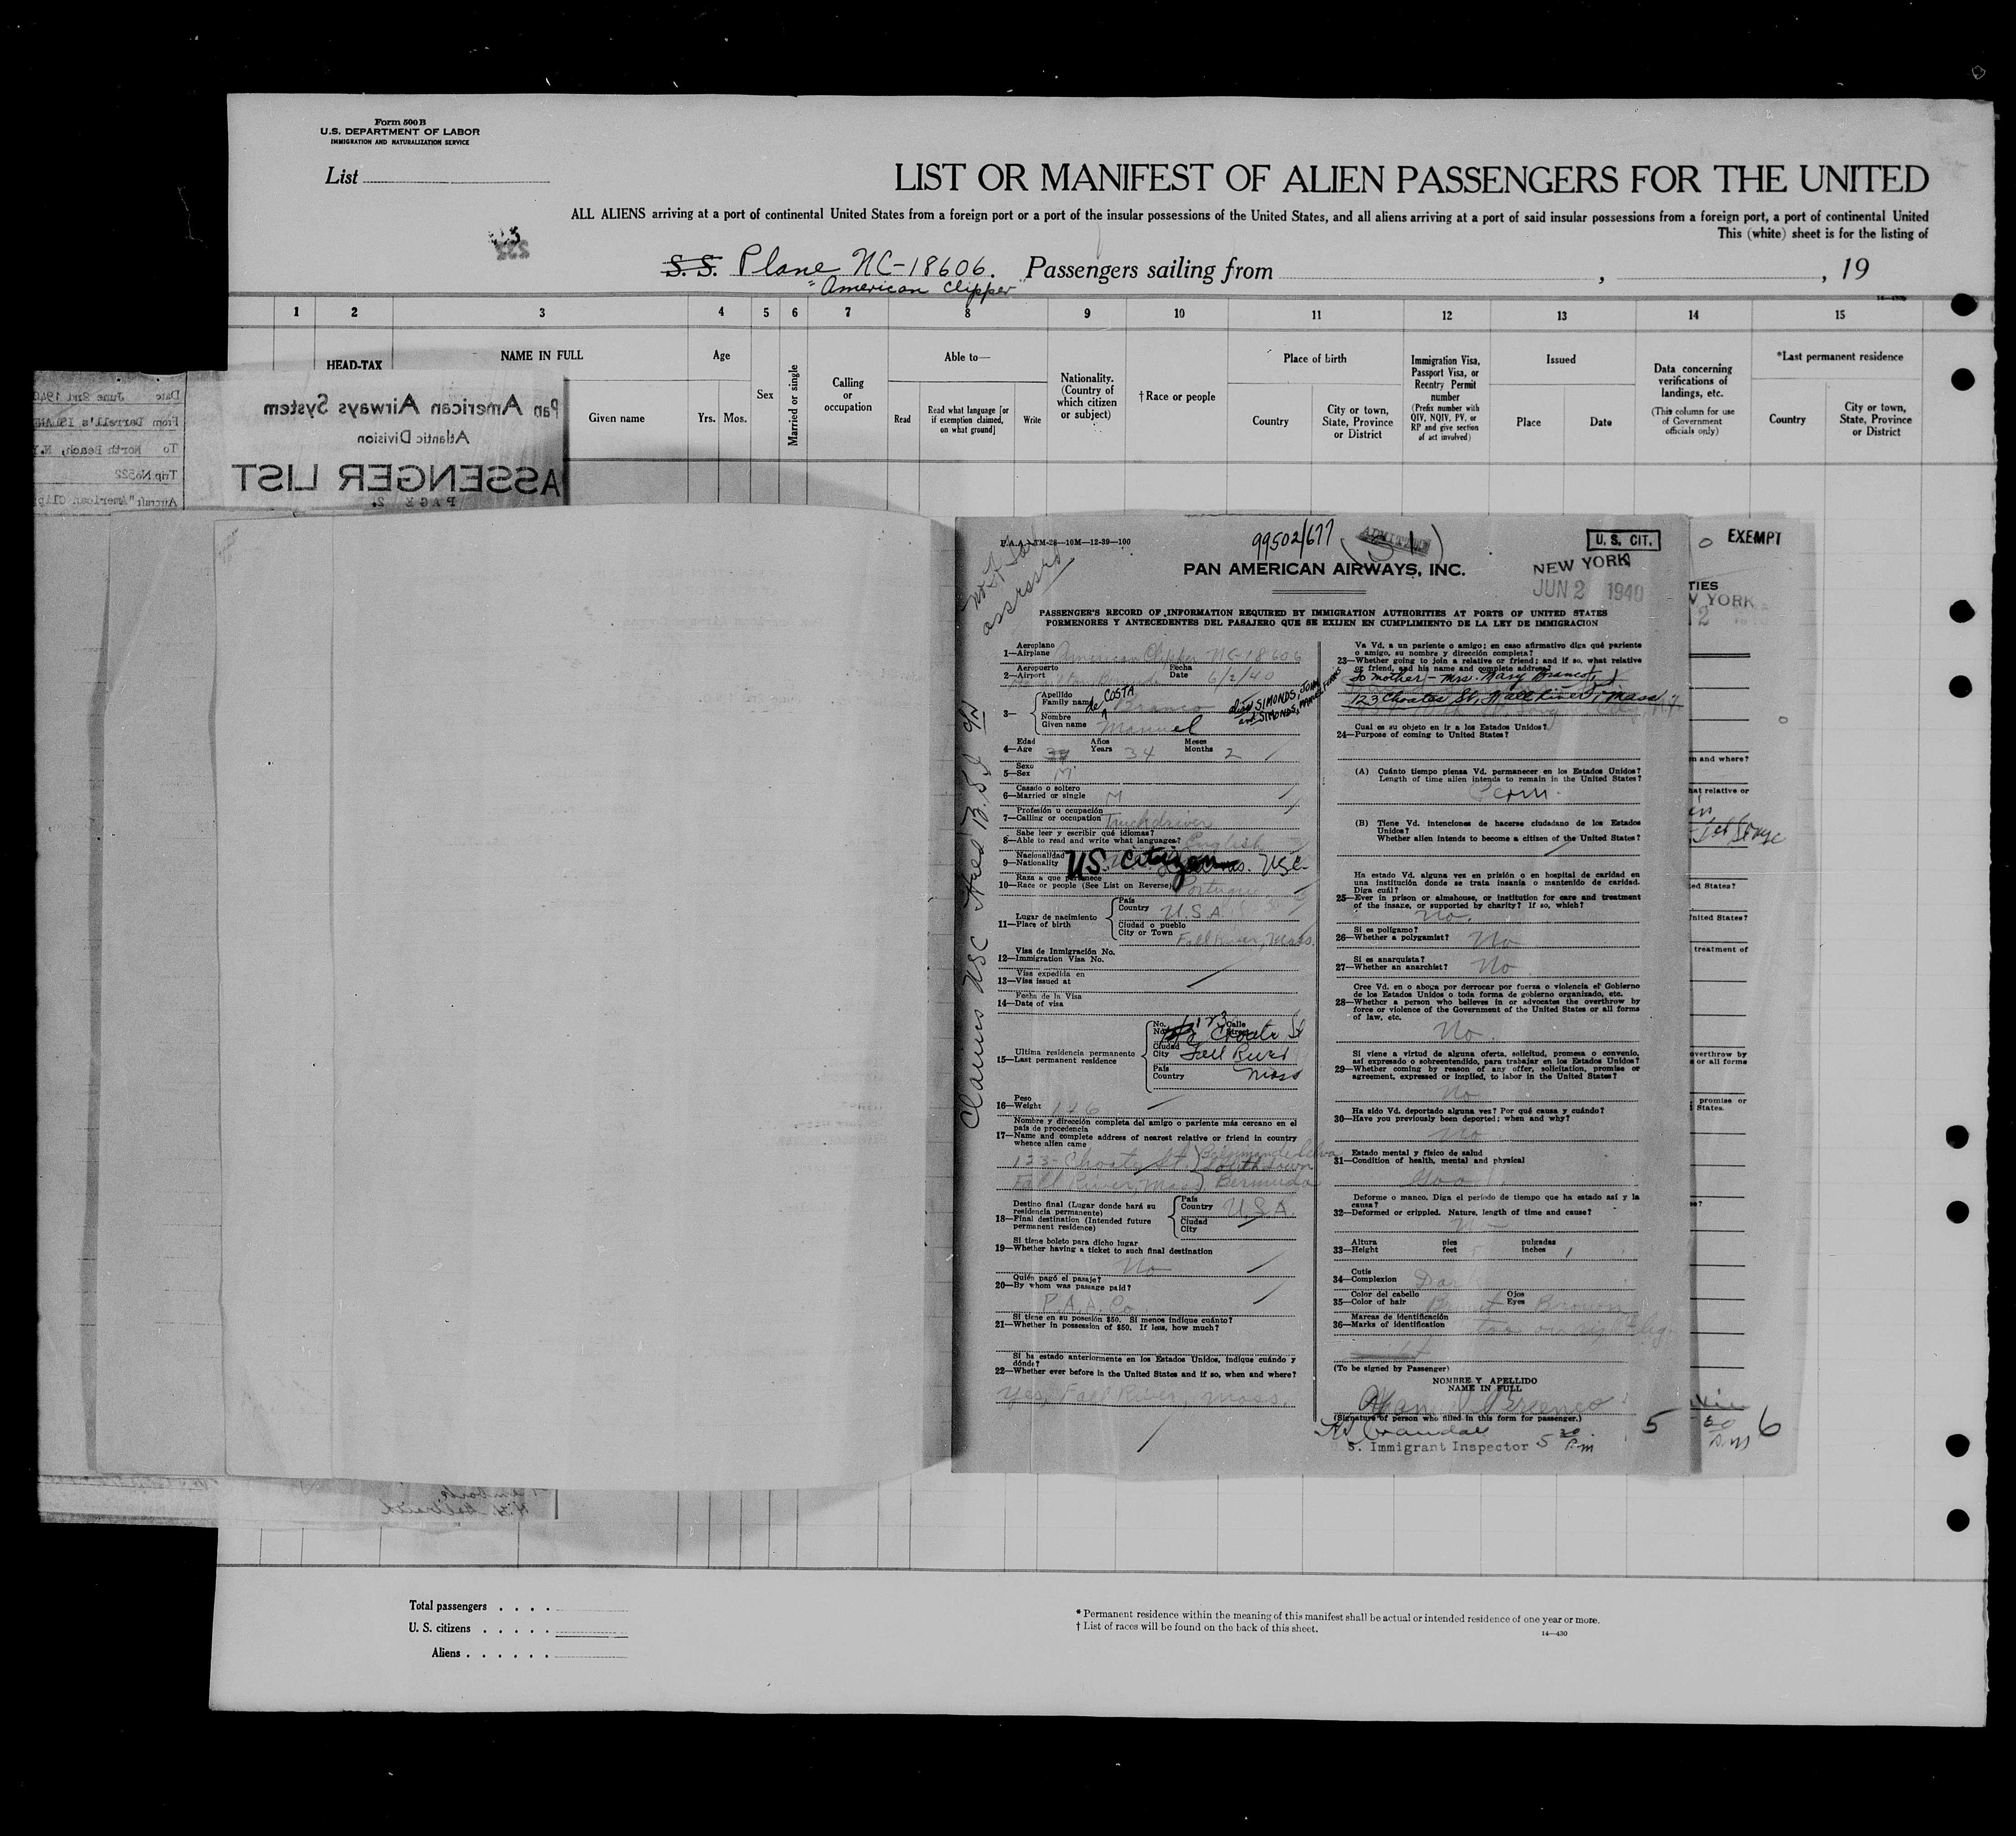 Form 500 B
U.S. DEPARTMENT OF LABOR
IMMIGRATION AND NATURALIZATION SERVICE
List
LIST OR MANIFEST OF ALIEN PASSENGERS FOR THE UNITED
ALL ALIENS arriving at a port of continental United States from a foreign port or a port of the insular possessions of the United States, and all aliens arriving at a port of said insular possessions from a foreign port, a port of continental United
This (white) sheet is for the listing of
S. S. Plane NC-18606. Passengers sailing from , , 19
"American Clipper"
1 2 3 4 5 6 7 8 9 10 11 12 13 14 15
HEAD-TAX
NAME IN FULL
Given name
Age
Yrs. Mos.
Sex
Married or single
Calling or occupation
Able to—
Read
Read what language [or if exemption claimed, on what ground]
Write
Nationality. (Country of which citizen or subject)
†Race or people
Place of birth
Country
City or town, State, Province or District
Immigration Visa, Passport Visa, or Reentry Permit number
(Prefix number with QIV, NQIV, PV, or RP and give section of act involved)
Issued
Place
Date
Data concerning verifications of landings, etc.
(This column for use of Government officials only)
*Last permanent residence
Country
City or town, State, Province or District
Date June 2nd 194
From Darrell's ISLAN
To North Beach, N.Y
Trip No 522
Aircraft "American Clip
Pan American Airways System
Atlantic Division
ASSENGER LIST
PAGE 2.
TM-28—10M—12-39—100
99502/677
ADMITTED
U. S. CIT.
NEW YORK
JUN 2 1940
PAN AMERICAN AIRWAYS, INC.
PASSENGER'S RECORD OF INFORMATION REQUIRED BY IMMIGRATION AUTHORITIES AT PORTS OF UNITED STATES
PORMENORES Y ANTECEDENTES DEL PASAJERO QUE SE EXIJEN EN CUMPLIMIENTO DE LA LEY DE IMMIGRACION
Claims USC
Aeroplano
1—Airplane American Clipper NC-18606
Aeropuerto Fecha
2—Airport Date 6/2/40
Apellido
Family name de COSTA Branco
alias SIMONDS, JOHN
and SIMONDS,
3—
Nombre
Given name Manuel
Edad Años Meses
4—Age Years 34 Months 2
Sexo
5—Sex M
Casado o soltero
6—Married or single M
Profesión u ocupación
7—Calling or occupation Truckdriver
Sabe leer y escribir qué idiomas?
8—Able to read and write what languages? English
Nacionalidad
9—Nationality U.S. Citizen USC
Raza a que pertenece
10—Race or people (See List on Reverse) Portuguese
11—Lugar de nacimiento
Place of birth
Pais
Country U.S.A.
Ciudad o pueblo
City or Town Fall River, Mass.
Visa de Inmigración No.
12—Immigration Visa No.
Visa expedida en
13—Visa issued at
Fecha de la Visa
14—Date of visa
Ultima residencia permanente
15—Last permanent residence
No. 123 Calle
No. Choate St
Ciudad
City Fall River
Pais
Country Mass
Peso
16—Weight 126
Nombre y dirección completa del amigo o pariente más cercano en el
país de procedencia
17—Name and complete address of nearest relative or friend in country
whence alien came
123- Choate St. Southdown
Fall River, Mass. Bermuda
Destino final (Lugar donde hará su
residencia permanente)
18—Final destination (Intended future
permanent residence)
Pais
Country U.S.A.
Ciudad
City
Si tiene boleto para dicho lugar
19—Whether having a ticket to such final destination
No
Quién pagó el pasaje?
20—By whom was passage paid?
P.A.A. Co.
Si tiene en su posesión $50. Si menos indique cuánto?
21—Whether in possession of $50. If less, how much?
Si ha estado anteriormente en los Estados Unidos, indique cuándo y
dónde?
22—Whether ever before in the United States and if so, when and where?
Yes, Fall River, Mass.
Va Vd. a un pariente o amigo; en caso afirmativo diga qué pariente
o amigo, su nombre y dirección completa?
23—Whether going to join a relative or friend; and if so, what relative
or friend, and his name and complete address?
To mother - Mrs. Mary Branco
123 Choate St, Fall River, Mass
Cual es su objeto en ir a los Estados Unidos?
24—Purpose of coming to United States?
(A) Cuánto tiempo piensa Vd. permanecer en los Estados Unidos?
Length of time alien intends to remain in the United States?
Perm.
(B) Tiene Vd. intenciones de hacerse ciudadano de los Estados
Unidos?
Whether alien intends to become a citizen of the United States?
Ha estado Vd. alguna vez en prisión o en hospital de caridad en
una institución donde se trata insania o mantenido de caridad.
Diga cuál?
25—Ever in prison or almshouse, or institution for care and treatment
of the insane, or supported by charity? If so, which?
No.
Si es polígamo?
26—Whether a polygamist? No
Si es anarquista?
27—Whether an anarchist? No
Cree Vd. en o aboga por derrocar por fuerza o violencia el Gobierno
de los Estados Unidos o toda forma de gobierno organizado, etc.
28—Whether a person who believes in or advocates the overthrow by
force or violence of the Government of the United States or all forms
of law, etc.
No.
Si viene a virtud de alguna oferta, solicitud, promesa o convenio,
así expresado o sobreentendido, para trabajar en los Estados Unidos?
29—Whether coming by reason of any offer, solicitation, promise or
agreement, expressed or implied, to labor in the United States?
No
Ha sido Vd. deportado alguna vez? Por qué causa y cuándo?
30—Have you previously been deported; when and why?
No
Estado mental y físico de salud
31—Condition of health, mental and physical
Good
Deforme o manco. Diga el período de tiempo que ha estado así y la
causa?
32—Deformed or crippled. Nature, length of time and cause?
No
Altura pies pulgadas
33—Height feet 5 inches 1
Cutis
34—Complexion Dar
Color del cabello Ojos
35—Color of hair Eyes Brown
Marcas de identificación
36—Marks of identification
(To be signed by Passenger)
NOMBRE Y APELLIDO
NAME IN FULL
(Signature of person who filled in this form for passenger.)
S. Immigrant Inspector 5 30 P.m
5
6
EXEMPT
TIES
YORK
2
n and where?
hat relative or
ed States?
nited States?
treatment of
overthrow by
s or all forms
promise or
States.
se?
Total passengers . . . .
U. S. citizens . . . . .
Aliens . . . . . .
* Permanent residence within the meaning of this manifest shall be actual or intended residence of one year or more.
† List of races will be found on the back of this sheet.
14—430